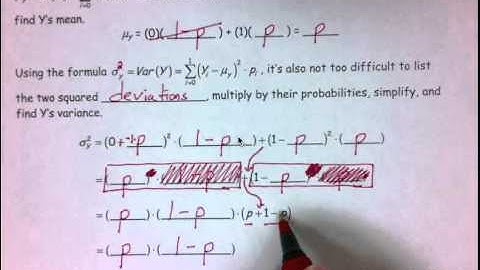 find Y's mean.
μy = (0)(1-p) + (1)(p) = p
Using the formula σy² = Var(Y) = Σ(Yi - μy)² · pi, it's also not too difficult to list
the two squared deviations, multiply by their probabilities, simplify, and
find Y's variance.
σy² = (0 + -1·p)² · (1-p) + (1- p)² · (p)
= (p) · + (1- p) ·
= (p) · (1-p) · (p + 1 - p)
= (p) · (1-p)